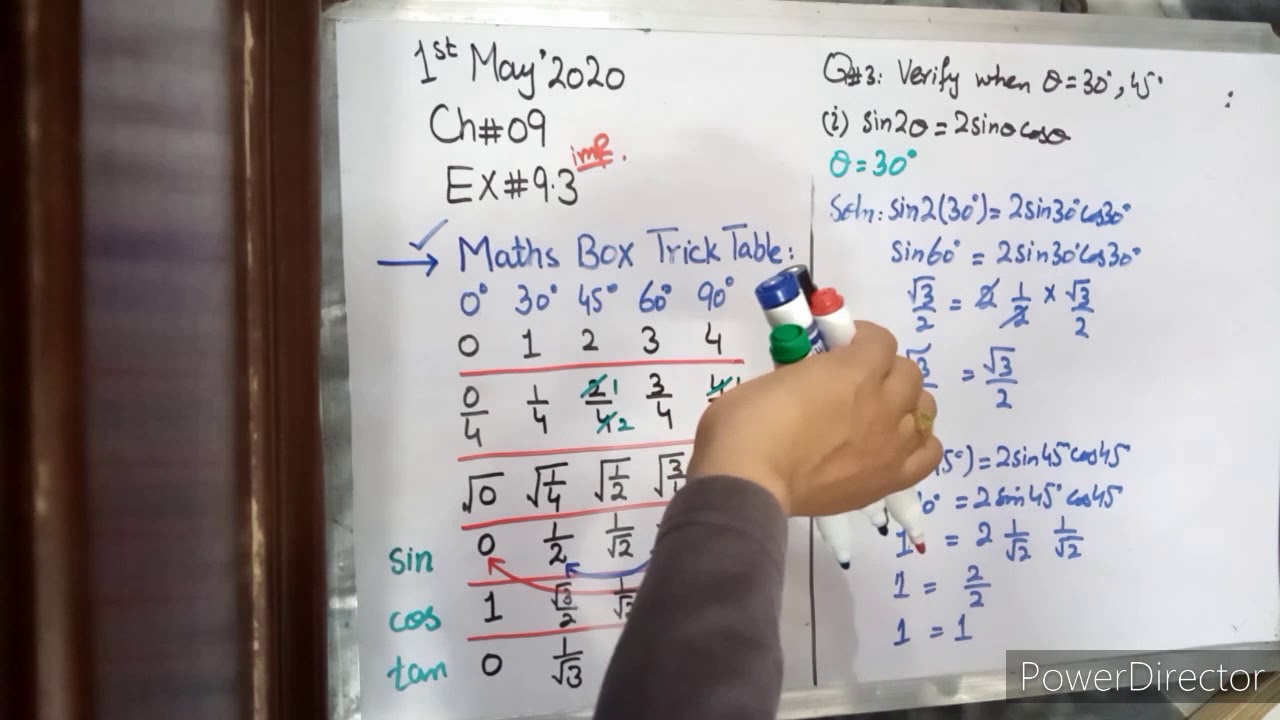 1st May'2020
Ch#09
Ex#9.3 imp.
Maths Box Trick Table:
0° 30° 45° 60° 90°
0 1 2 3 4
0/4 1/4 2/4 1 2 3/4
√0 √1/4 √1/2
sin 0 1/2 1/√2
cos 1 √3/2
tan 0 1/√3
Q#3: Verify when θ=30°,45° :
(i) sin2θ=2sinθcosθ
θ=30°
Soln: sin2(30°)=2sin30°cos30°
sin60° = 2sin30°cos30°
√3/2 = 2 1/2 × √3/2
= √3/2
5°)=2sin45°cos45°
0° = 2sin45°cos45°
1 = 2 1/√2 1/√2
1 = 2/2
1 = 1
PowerDirector